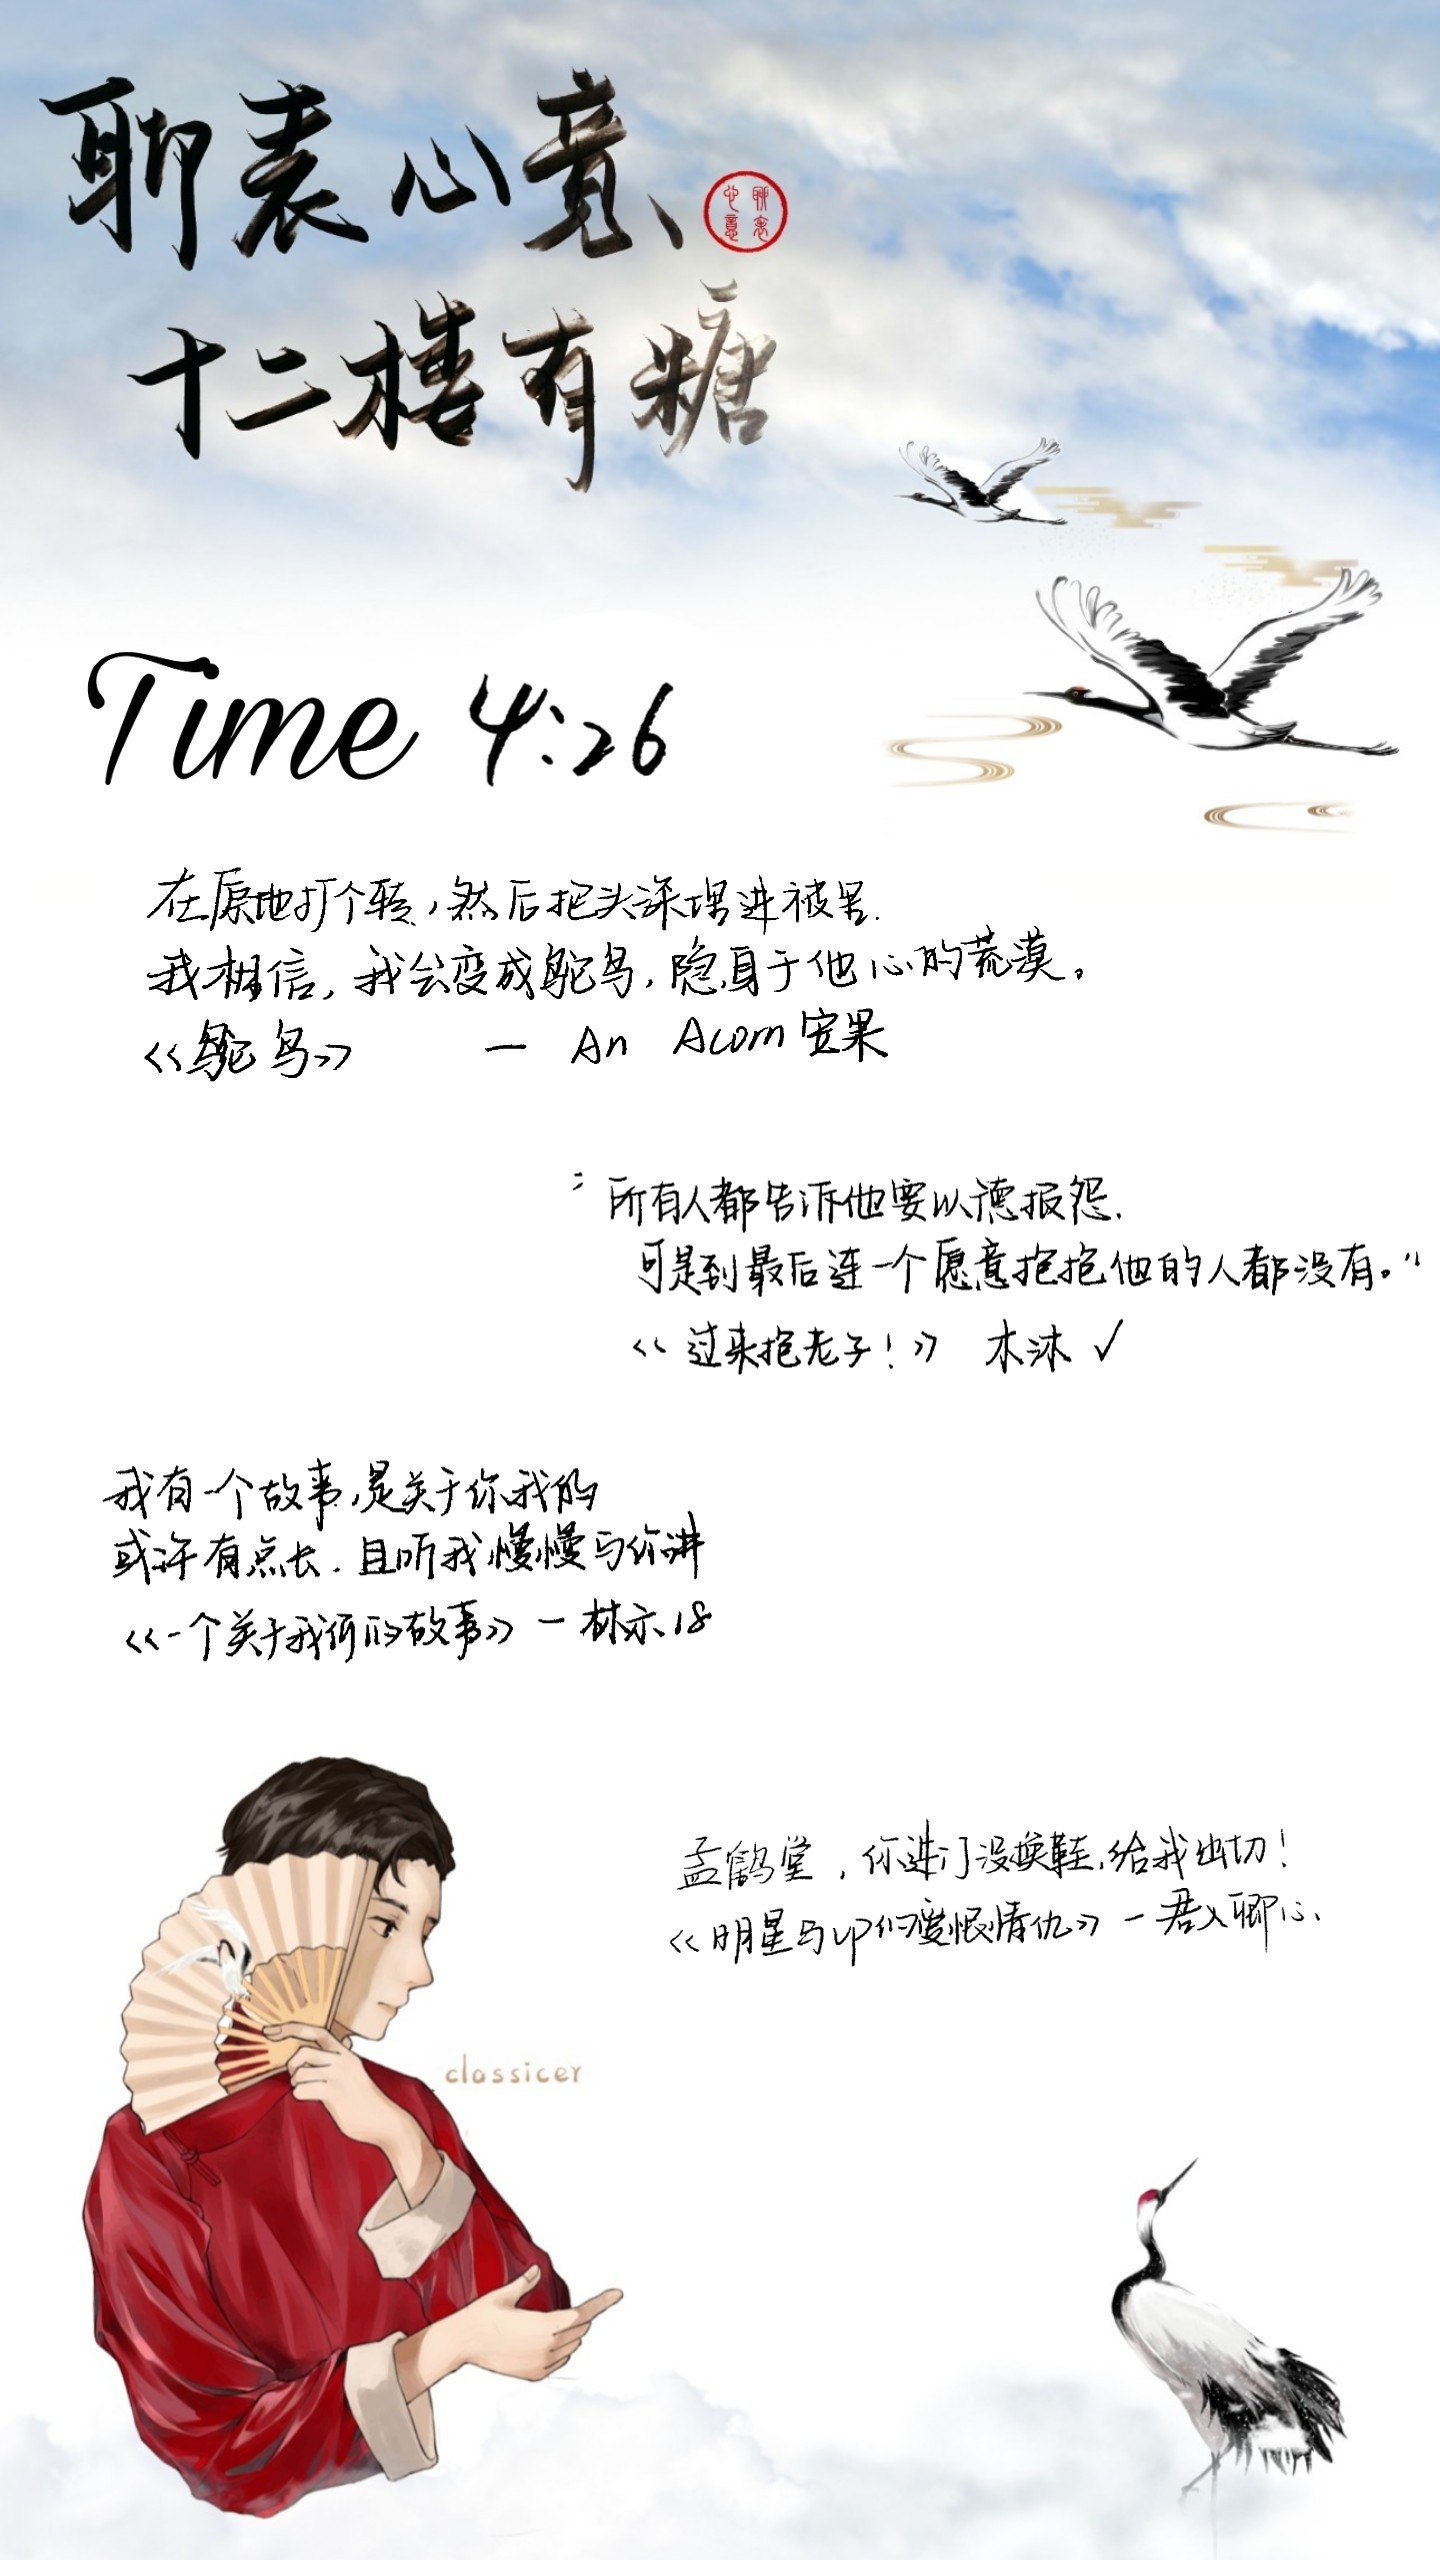 聊表心意、
聊表心意
十二楼有糖
Time 4:26
在原地打个转,然后把头深埋进被号.
我相信,我会变成鸵鸟,隐身于他心的荒漠。
《鸵鸟》 — An Acorn 安果
"所有人都告诉他要以德报怨.
可是到最后连一个愿意抱抱他的人都没有。"
《过来抱老子!》 木沐√
我有一个故事,是关于你我的
或许有点长.且听我慢慢与你讲
《一个关于我们的故事》—林示18
孟鹤堂,你进门没换鞋,给我出切!
《明星与up的爱恨情仇》—君义聊心、
classicer